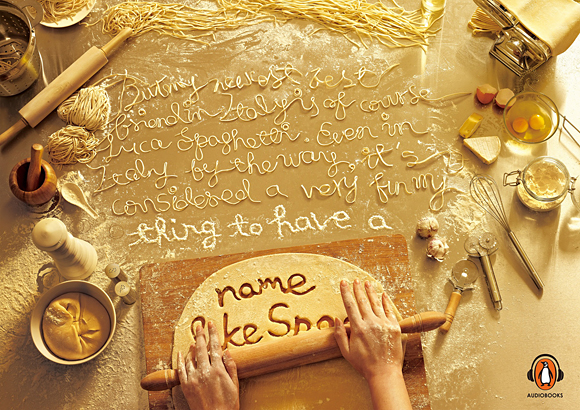 But my newest best
friend in Italy is of course
Luca Spaghetti. Even in
Italy, by the way, it's
considered a very funny
thing to have a
name
like
AUDIOBOOKS